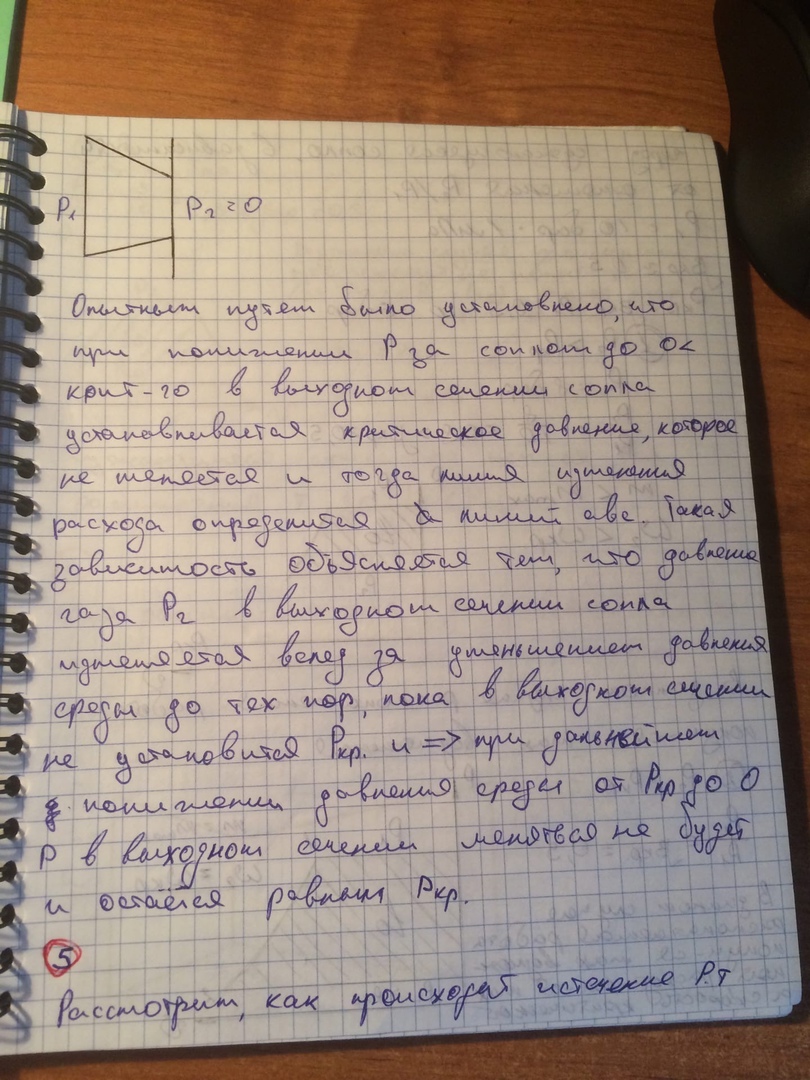 P₁ P₂ = 0
Опытным путем было установлено, что
при понижении P за соплом до 0<
крит-го в выходном сечении сопла
устанавливается критическое давление, которое
не меняется и тогда линия изменения
расхода определится линий авс. Такая
зависимость объясняется тем, что давление
газа P₂ в выходном сечении сопла
изменяется вслед за уменьшением давления
среды до тех пор, пока в выходном сечении
не установится Pкр. и => при дальнейшем
понижении давления среды от Pкр до 0
P в выходном сечении меняться не будет
и остаётся равным Pкр.
5
Рассмотрим, как происходит истечение Р.Т